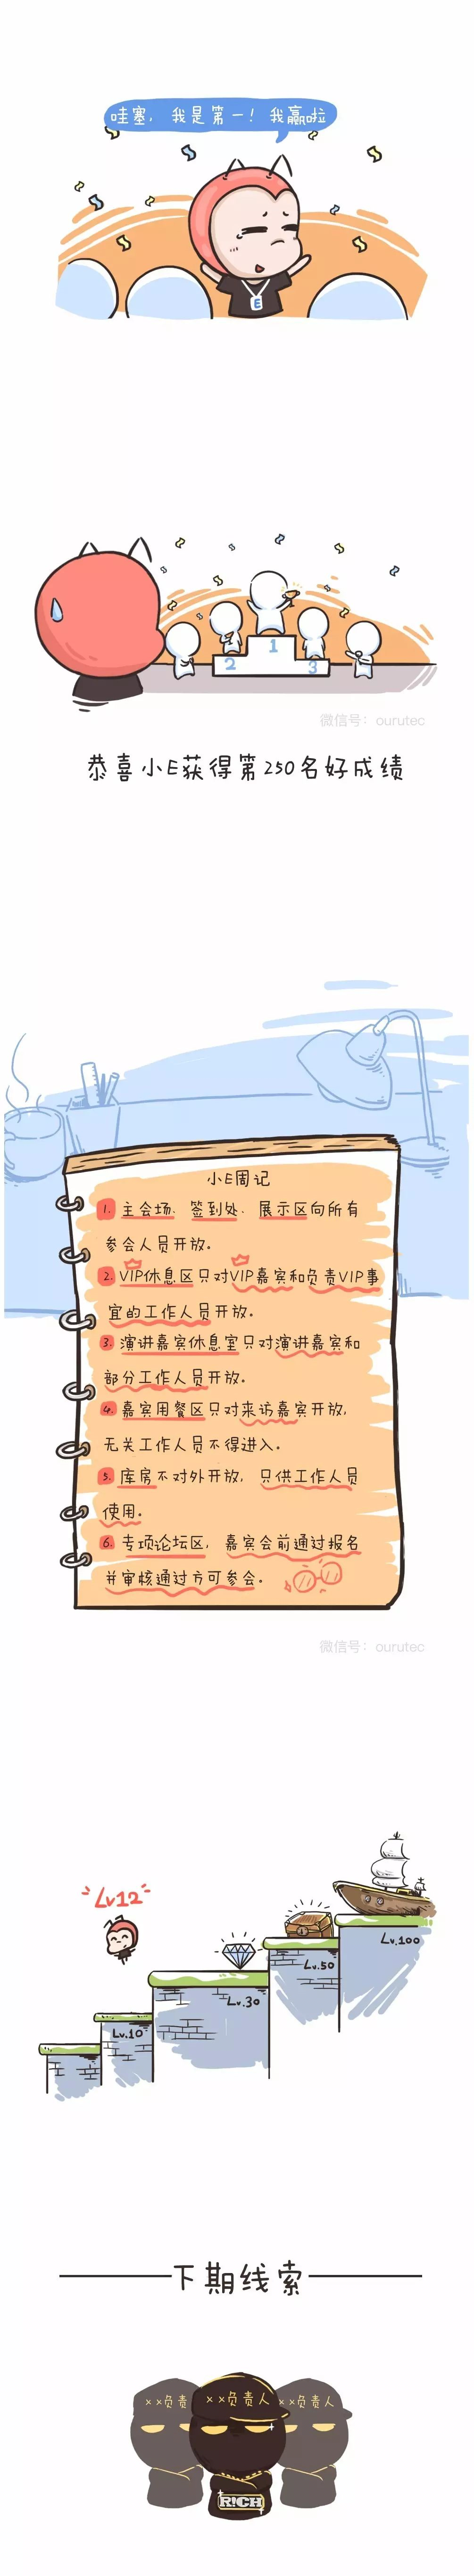 哇塞，我是第一！我赢啦
E
1
2
3
微信号：ourutec
恭喜小E获得第250名好成绩
小E周记
1. 主会场、签到处、展示区向所有
参会人员开放。
2. VIP休息区只对VIP嘉宾和负责VIP事
宜的工作人员开放。
3. 演讲嘉宾休息室只对演讲嘉宾和
部分工作人员开放。
4. 嘉宾用餐区只对来访嘉宾开放，
无关工作人员不得进入。
5. 库房不对外开放，只供工作人员
使用。
6. 专项论坛区，嘉宾会前通过报名
并审核通过方可参会。
微信号：ourutec
Lv12
Lv.100
Lv.50
Lv.30
Lv.10
下期线索
××负责
××负责人
××负责人
R!CH